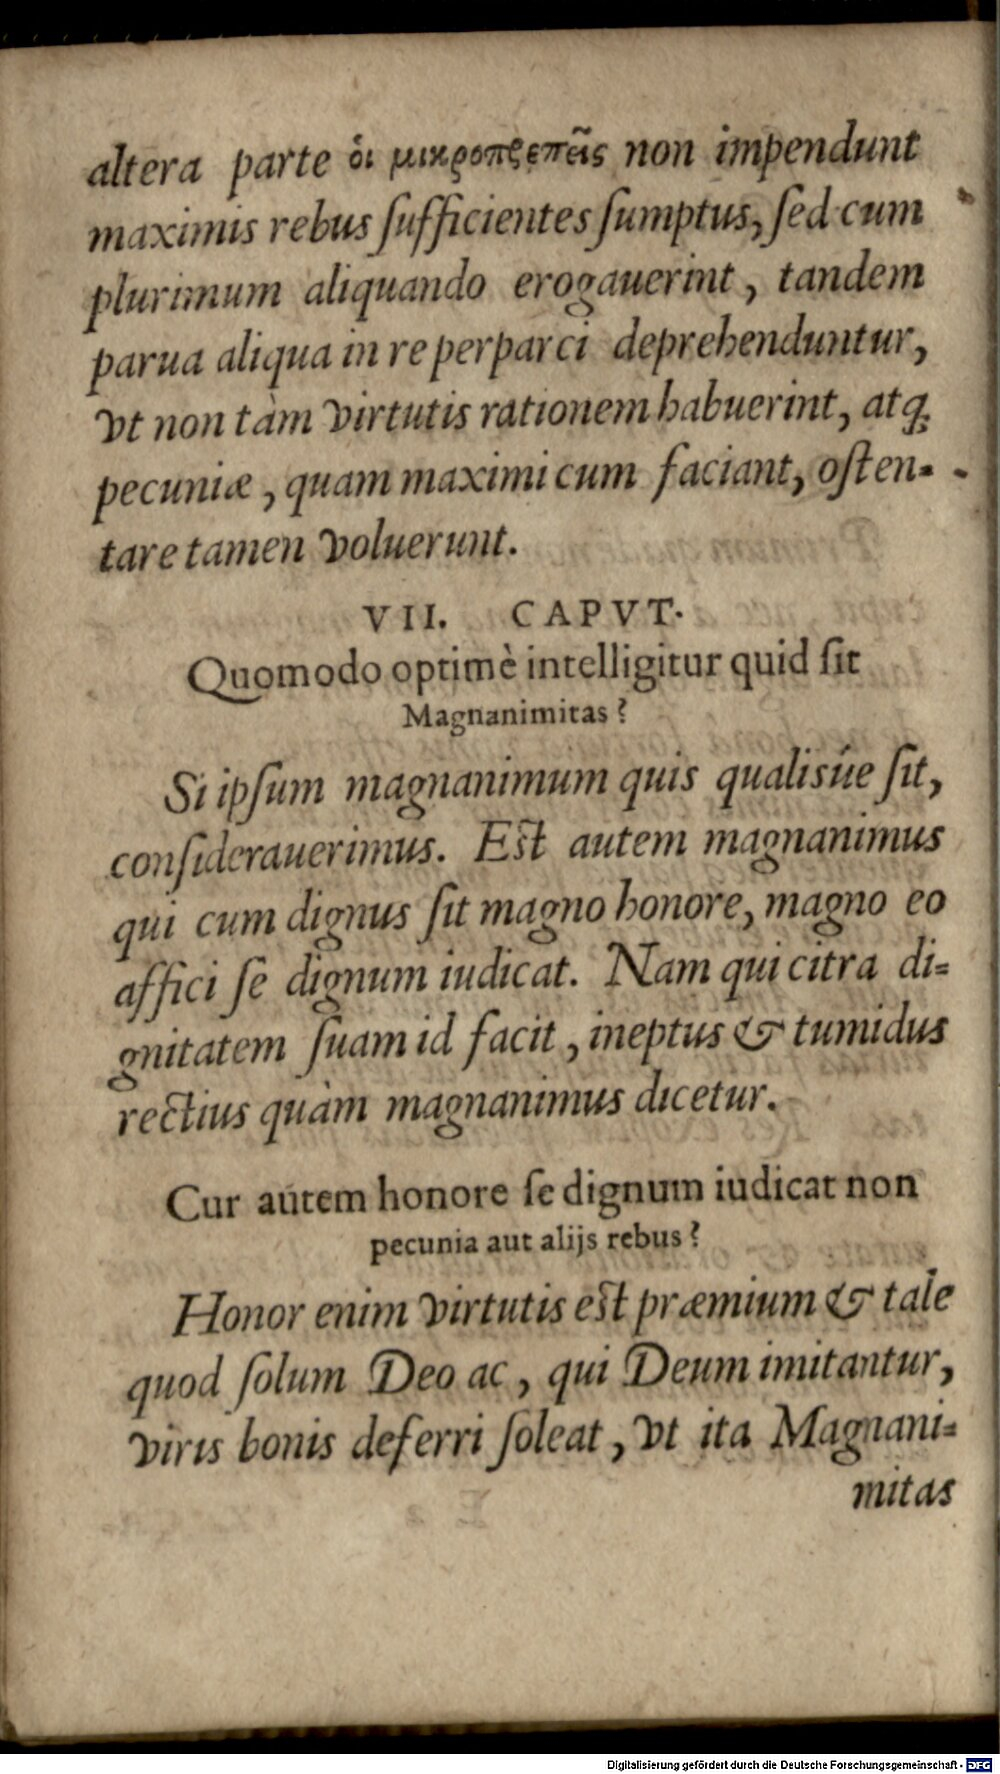 altera parte ὁι μικροπρεπεῖς non impendunt
maximis rebus ſufficientes ſumptus, ſed cum
plurimum aliquando erogauerint, tandem
parua aliqua in re perparci deprehenduntur,
vt non tàm virtutis rationem habuerint, atq;
pecuniæ, quam maximi cum faciant, oſten-
tare tamen voluerunt.
VII. CAPVT.
Quomodo optimè intelligitur quid ſit
Magnanimitas?
Si ipſum magnanimum quis qualisúe ſit,
conſiderauerimus. Eſt autem magnanimus
qui cum dignus ſit magno honore, magno eo
affici ſe dignum iudicat. Nam qui citra di-
gnitatem ſuam id facit, ineptus & tumidus
rectius quàm magnanimus dicetur.
Cur autem honore ſe dignum iudicat non
pecunia aut alijs rebus?
Honor enim virtutis eſt præmium & tale
quod ſolum Deo ac, qui Deum imitantur,
viris bonis deferri ſoleat, vt ita Magnani-
mitas
Digitalisierung gefördert durch die Deutsche Forschungsgemeinschaft - DFG